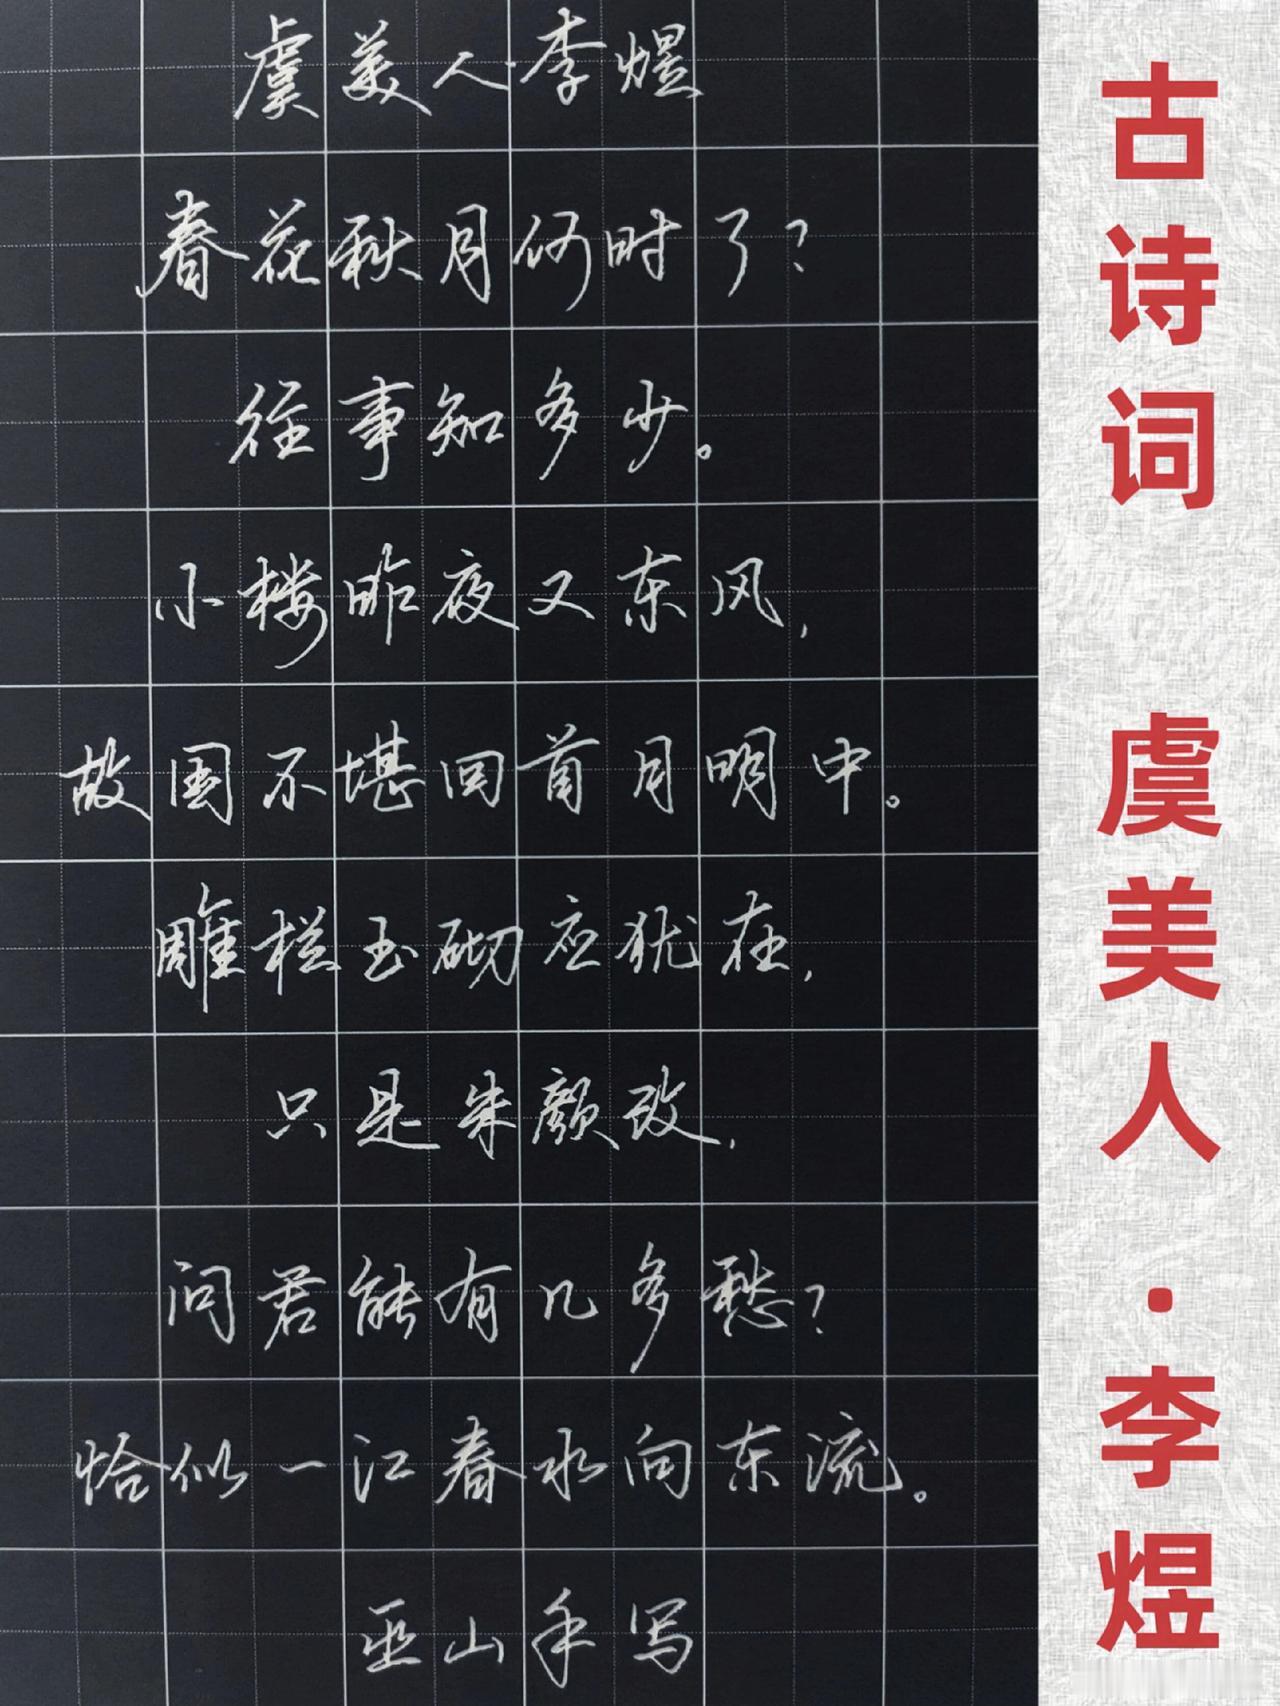 虞美人·李煜
春花秋月何时了？
往事知多少。
小楼昨夜又东风，
故国不堪回首月明中。
雕栏玉砌应犹在，
只是朱颜改，
问君能有几多愁？
恰似一江春水向东流。
巫山手写
古诗词 虞美人·李煜